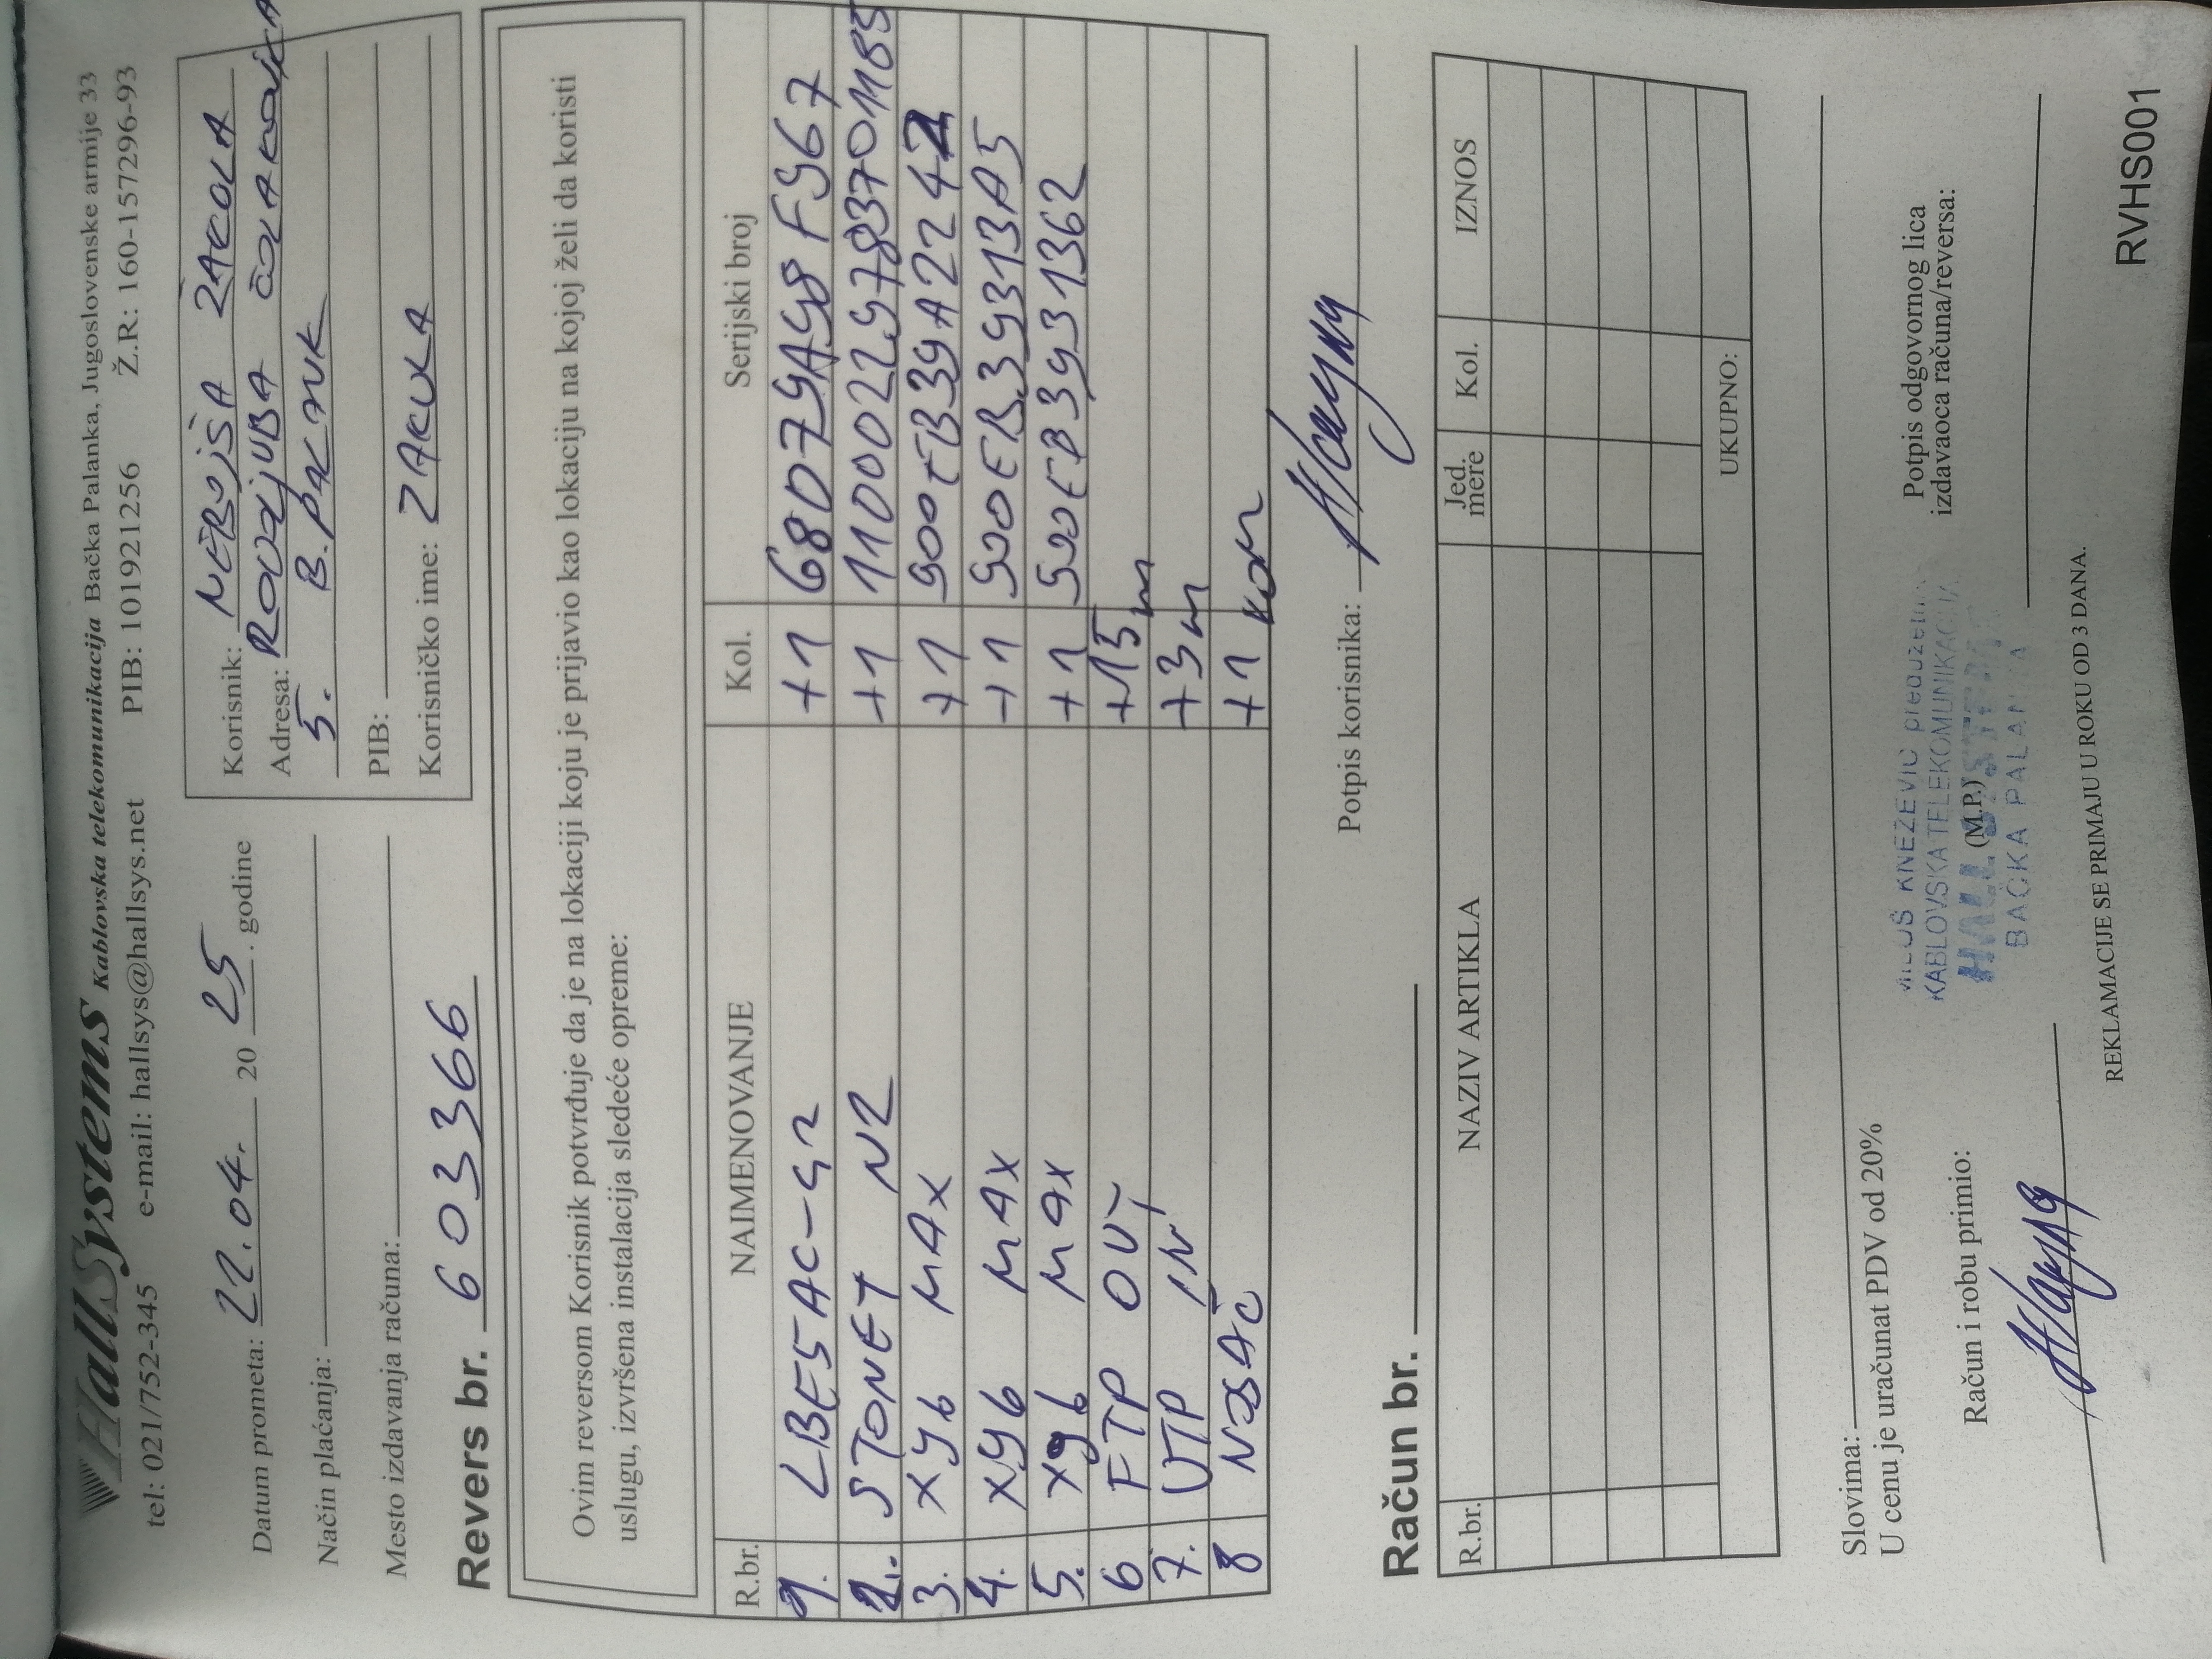 HallSystems Kablovska telekomunikacija Bačka Palanka, Jugoslovenske armije 33
tel: 021/752-345 e-mail: hallsys@hallsys.net PIB: 101921256 Ž.R: 160-157296-93
Datum prometa: 22.04. 20 25. godine
Način plaćanja:
Mesto izdavanja računa:
Korisnik: NEBOJŠA ŽAKULA
Adresa: RODOLJUBA ČOLAKOVIĆA
5. B. PALANK
PIB:
Korisničko ime: ZAKULA
Revers br. 603366
Ovim reversom Korisnik potvrđuje da je na lokaciji koju je prijavio kao lokaciju na kojoj želi da koristi
uslugu, izvršena instalacija sledeće opreme:
R.br. NAIMENOVANJE Kol. Serijski broj
1. LBE5AC-G2 +1 68079A98F967
2. STONET N2 +1 11000229783701185
3. X96 MAX +1 900EB39A2242
4. X96 MAX +1 900EB39313A5
5. X96 MAX +1 900EB3931362
6 FTP OUT +15m
7. UTP IN +3m
8 NOSAČ +1 KOM
Potpis korisnika:
Račun br.
R.br. NAZIV ARTIKLA Jed. mere Kol. IZNOS
UKUPNO:
Slovima:
U cenu je uračunat PDV od 20%
Račun i robu primio:
MILOŠ KNEŽEVIĆ preduzetnik
KABLOVSKA TELEKOMUNIKACIJA
HALL SYSTEMS
(M.P.)
BAČKA PALANKA
Potpis odgovornog lica
izdavaoca računa/reversa:
REKLAMACIJE SE PRIMAJU U ROKU OD 3 DANA.
RVHS001